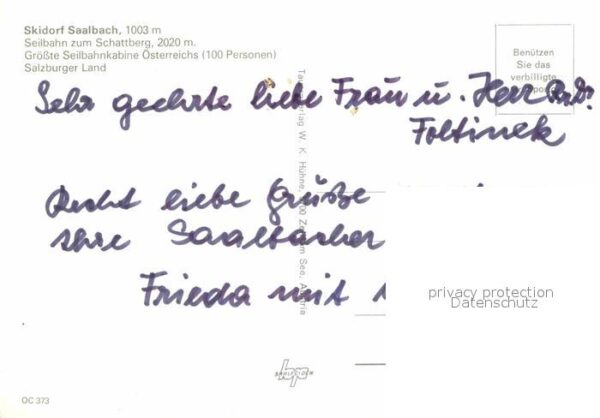 Skidorf Saalbach, 1003 m
Seilbahn zum Schattberg, 2020 m.
Größte Seilbahnkabine Österreichs (100 Personen)
Salzburger Land
Benützen
Sie das
verbilligte
Sehr geehrte liebe Frau u. Herr
Foltinek
Recht liebe Grüße
Ihre Saalbacher
Frieda mit
Verlag W. K. Hühne, Zell am See, Austria
privacy protection
Datenschutz
OC 373